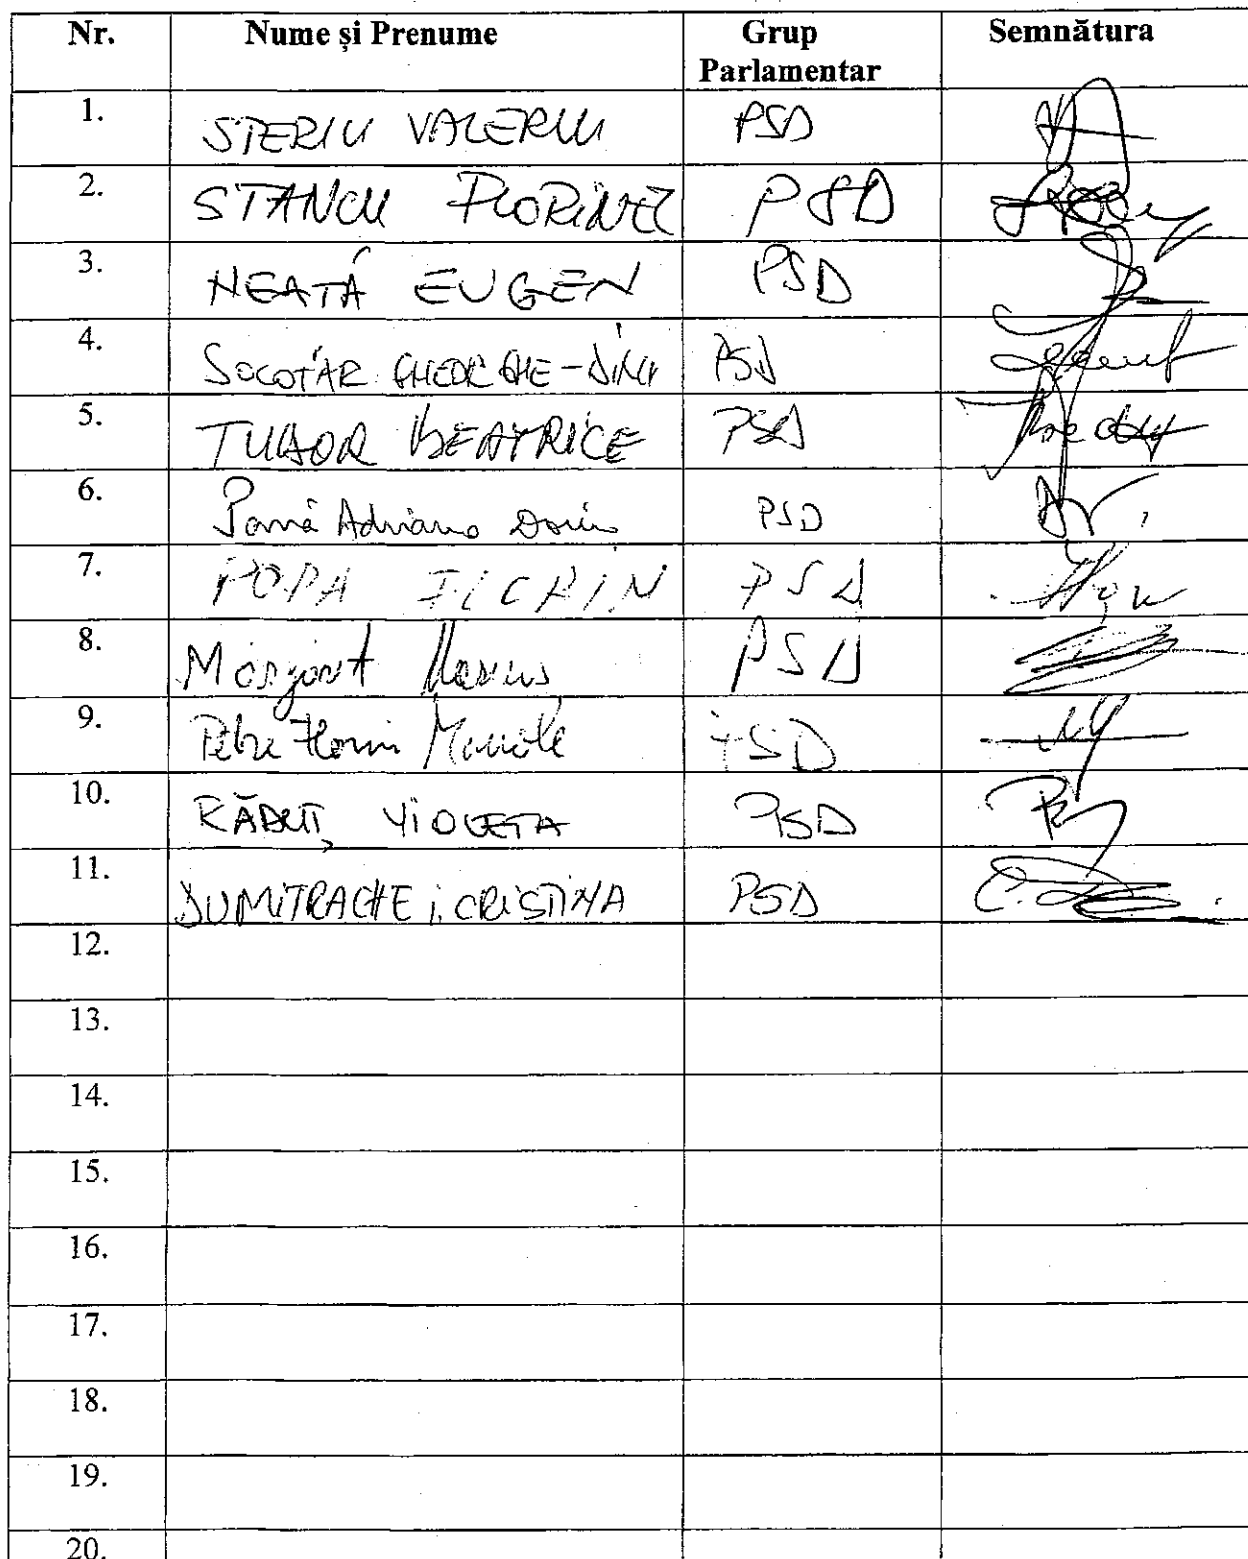 Nr. Nume și Prenume Grup Parlamentar Semnătura
1. STERIU VALERIU PSD
2. STANCU FLORINEL PSD
3. NEAȚĂ EUGEN PSD
4. SOCOTAR GHEORGHE-DINU PSD
5. TUDOR BEATRICE PSD
6. Pană Adriana Doina PSD
7. POPA FLORIN PSD
8. Marius PSD
9. Petre Florin Manole PSD
10. RĂDUȚ VIOLETA PSD
11. DUMITRACHE I. CRISTINA PSD
12.
13.
14.
15.
16.
17.
18.
19.
20.